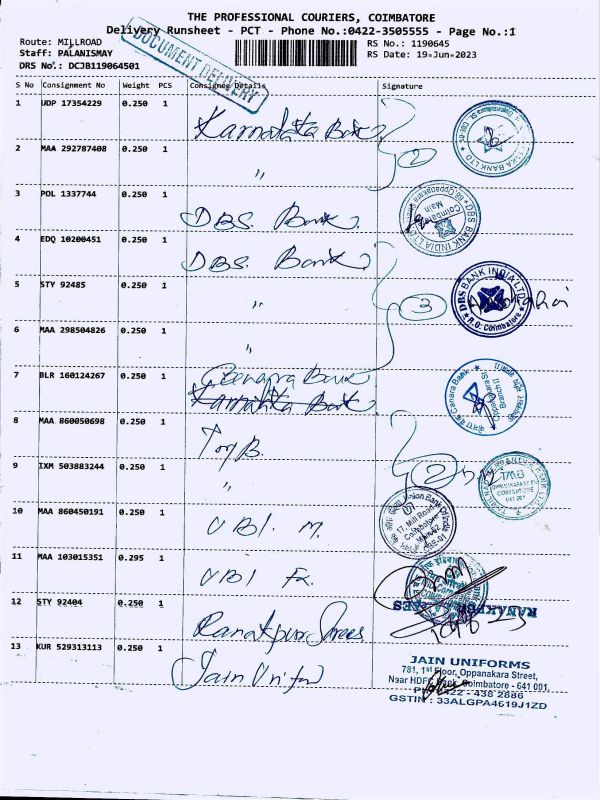 THE PROFESSIONAL COURIERS, COIMBATORE
Delivery Runsheet - PCT - Phone No.:0422-3505555 - Page No.:1
Route: MILLROAD
Staff: PALANISMAY
DRS No.: DCJB119064501
RS No.: 1190645
RS Date: 19-Jun-2023
DOCUMENT DELIVERY
S No Consignment No Weight PCS Consignee Details Signature
1 UDP 17354229 0.250 1 Karnataka Bank
2 MAA 292787408 0.250 1 〃
2
3 POL 1337744 0.250 1 DBS Bank
4 EDQ 10200451 0.250 1 DBS Bank
5 STY 92485 0.250 1 〃
3
DBS BANK INDIA LTD
R.O. Coimbatore
6 MAA 298504826 0.250 1 〃
7 BLR 160124267 0.250 1 Canara Bank
Karnataka Bank
8 MAA 860050698 0.250 1 TMB
9 IXM 503883244 0.250 1 〃
2
TMB
COIMBATORE
641 001
10 MAA 860450191 0.250 1 UBI. M.
Union Bank Of India
17, Mill Road
Coimbatore
11 MAA 103015351 0.295 1 UBI
12 STY 92404 0.250 1 Ranakpur Sarees
13 KUR 529313113 0.250 1 Jain Uniform
JAIN UNIFORMS
781, 1st Floor, Oppanakara Street,
Near HDFC Bank, Coimbatore - 641 001,
PH: 0422 - 438 2886
GSTIN : 33ALGPA4619J1ZD